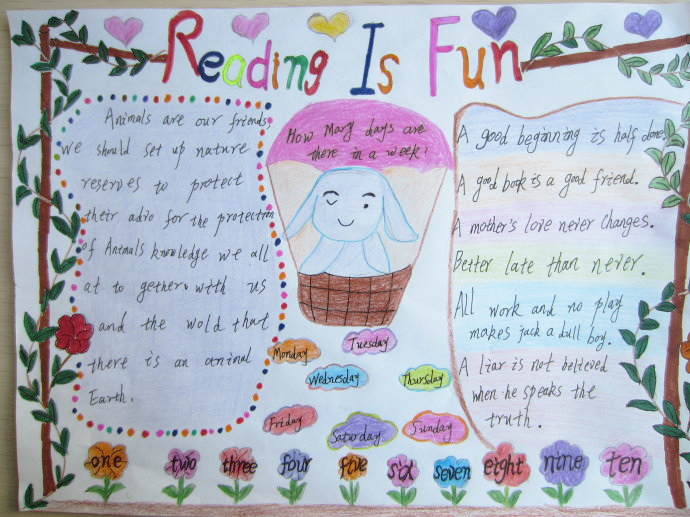 Reading Is Fun
Animals are our friends,
we should set up nature
reserves to protect
their advo for the protection
of Animals knowledge we all
at to gether with us
and the wold that
there is an animal
Earth.
How Many days are
there in a week?
Monday
Tuesday
Wednesday
Thursday
Friday
Saturday
Sunday
A good beginning is half done.
A good book is a good friend.
A mother's love never changes.
Better late than never.
All work and no play
makes jack a dull boy.
A liar is not believed
when he speaks the
truth.
one two three four five six seven eight nine ten